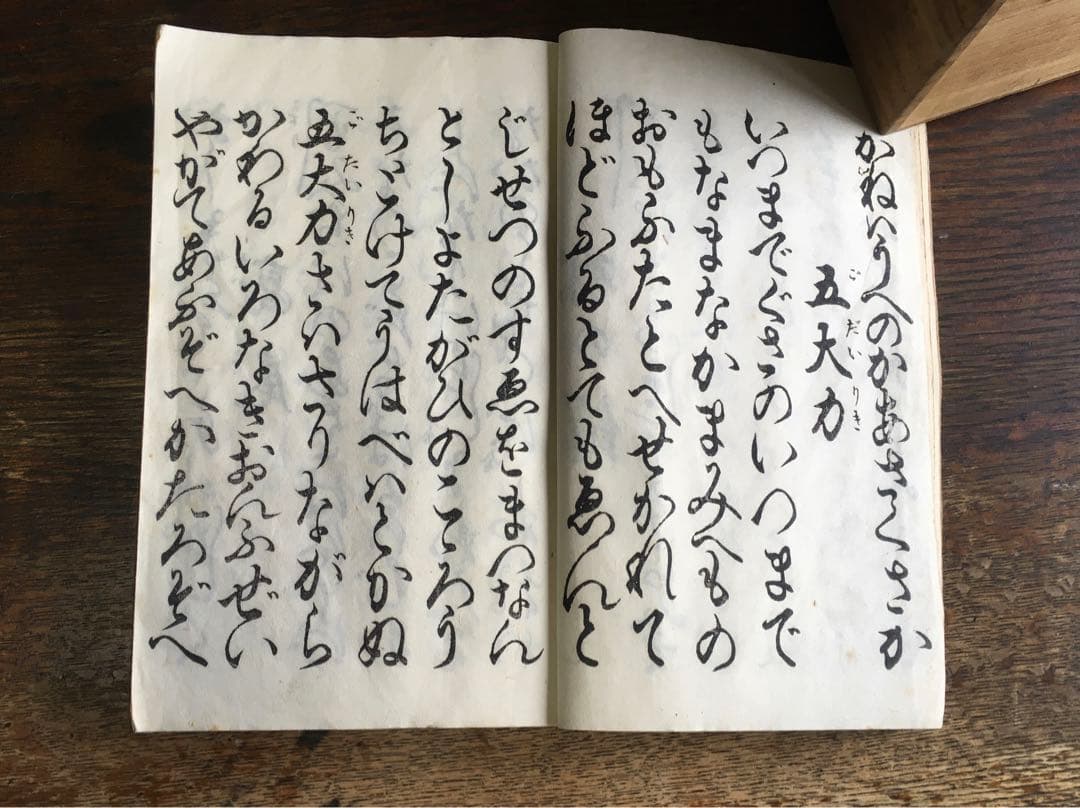 かねハうへのかあさくさか
五大力
ごだいりき
いつまでぐさのいつまで
もなまなかまみへもの
おもふたとへせかれて
ほどふるとてもゑんと
じせつのすゑをまつなん
としよたがひのこころう
ちとけてうはべハとかぬ
五大力さハさりながら
ごたいりき
かわるいろなきおんふぜい
やがてあふぞへかたろぞへ